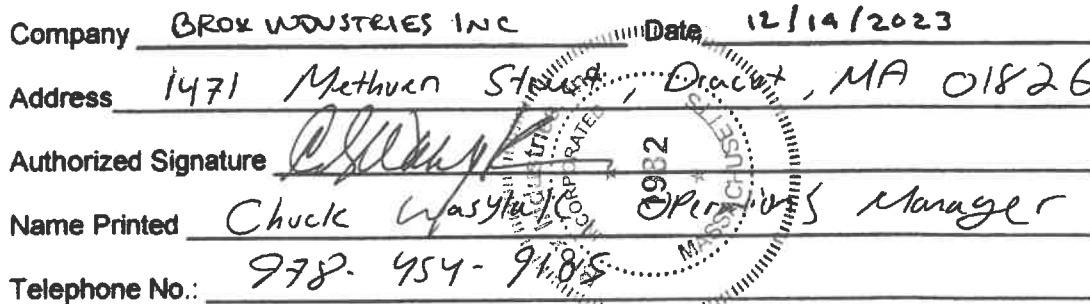 Company BROX INDUSTRIES INC Date 12/14/2023
Address 1471 Methuen Street, Dracut, MA 01826
Authorized Signature
Name Printed Chuck Operations Manager
Telephone No.: 978-454-9185
INCORPORATED
1982
MASSACHUSETTS